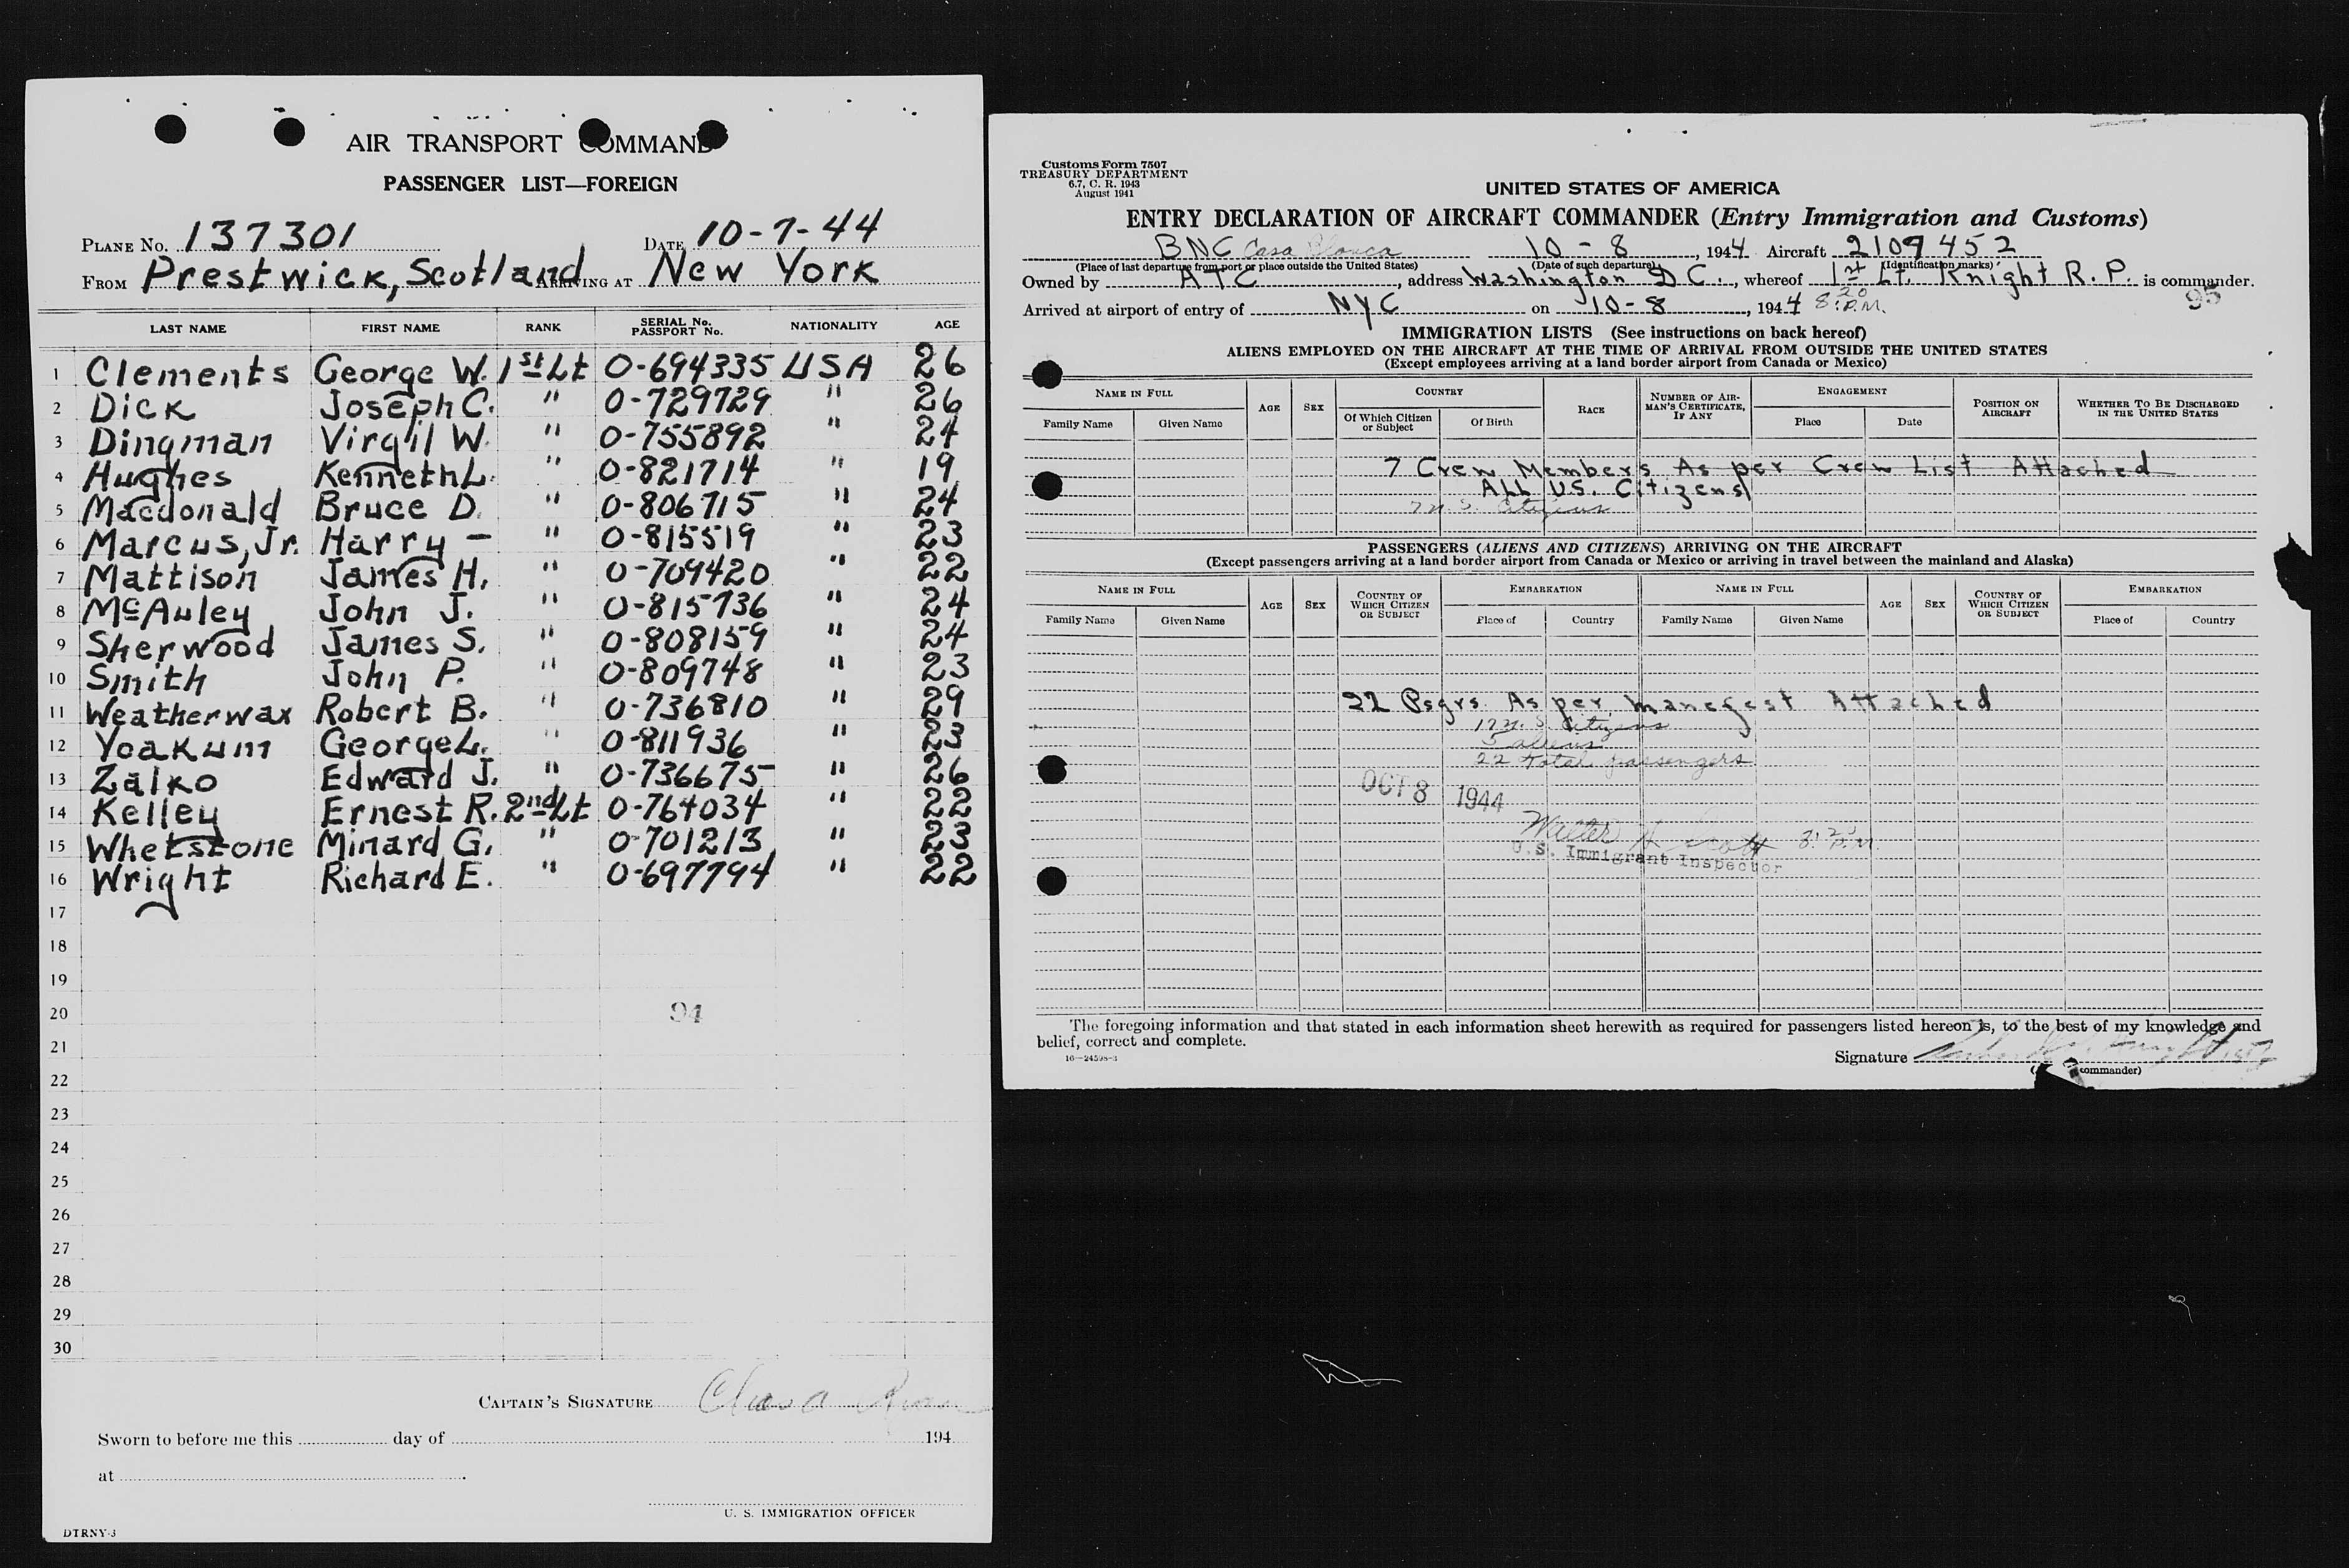 AIR TRANSPORT COMMAND
PASSENGER LIST—FOREIGN
PLANE No. 137301 DATE 10-7-44
FROM Prestwick, Scotland ARRIVING AT New York
LAST NAME FIRST NAME RANK SERIAL No. PASSPORT No. NATIONALITY AGE
1 Clements George W. 1st Lt 0-694335 USA 26
2 Dick Joseph C. " 0-729729 " 26
3 Dingman Virgil W. " 0-755892 " 24
4 Hughes Kenneth L. " 0-821714 " 19
5 Macdonald Bruce D. " 0-806715 " 24
6 Marcus, Jr. Harry - " 0-815519 " 23
7 Mattison James H. " 0-709420 " 22
8 McAuley John J. " 0-815736 " 24
9 Sherwood James S. " 0-808159 " 24
10 Smith John P. " 0-809748 " 23
11 Weatherwax Robert B. " 0-736810 " 29
12 Yoakum George L. " 0-811936 " 23
13 Zalko Edward J. " 0-736675 " 26
14 Kelley Ernest R. 2nd Lt 0-764034 " 22
15 Whetstone Minard G. " 0-701213 " 23
16 Wright Richard E. " 0-697794 " 22
17
18
19
20 94
21
22
23
24
25
26
27
28
29
30
CAPTAIN'S SIGNATURE
Sworn to before me this day of 194
at
U. S. IMMIGRATION OFFICER
DTRNY-3
Customs Form 7507
TREASURY DEPARTMENT
6.7, C. R. 1943
August 1941
UNITED STATES OF AMERICA
ENTRY DECLARATION OF AIRCRAFT COMMANDER (Entry Immigration and Customs)
BNC Casa Blanca 10-8, 1944 Aircraft 2109452
(Place of last departure from port or place outside the United States) (Date of such departure) (Identification marks)
Owned by ATC, address Washington D.C., whereof 1st Lt. Knight R. P. is commander.
Arrived at airport of entry of NYC on 10-8, 1944 8:20 P.M. 95
IMMIGRATION LISTS (See instructions on back hereof)
ALIENS EMPLOYED ON THE AIRCRAFT AT THE TIME OF ARRIVAL FROM OUTSIDE THE UNITED STATES
(Except employees arriving at a land border airport from Canada or Mexico)
NAME IN FULL AGE SEX COUNTRY RACE NUMBER OF AIRMAN'S CERTIFICATE, IF ANY ENGAGEMENT POSITION ON AIRCRAFT WHETHER TO BE DISCHARGED IN THE UNITED STATES
Family Name Given Name Of Which Citizen or Subject Of Birth Place Date
7 Crew Members As per Crew List Attached
ALL U.S. Citizens
7 U. S. Citizens
PASSENGERS (ALIENS AND CITIZENS) ARRIVING ON THE AIRCRAFT
(Except passengers arriving at a land border airport from Canada or Mexico or arriving in travel between the mainland and Alaska)
NAME IN FULL AGE SEX COUNTRY OF WHICH CITIZEN OR SUBJECT EMBARKATION NAME IN FULL AGE SEX COUNTRY OF WHICH CITIZEN OR SUBJECT EMBARKATION
Family Name Given Name Place of Country Family Name Given Name Place of Country
22 Psgrs. As per Manefest Attached
17 U. S. Citizens
5 aliens
22 total passengers
OCT 8 1944
Walter H Scott 8:20 P.M.
U.S. Immigrant Inspector
The foregoing information and that stated in each information sheet herewith as required for passengers listed hereon is, to the best of my knowledge and
belief, correct and complete.
16—24598-3
Signature
commander)